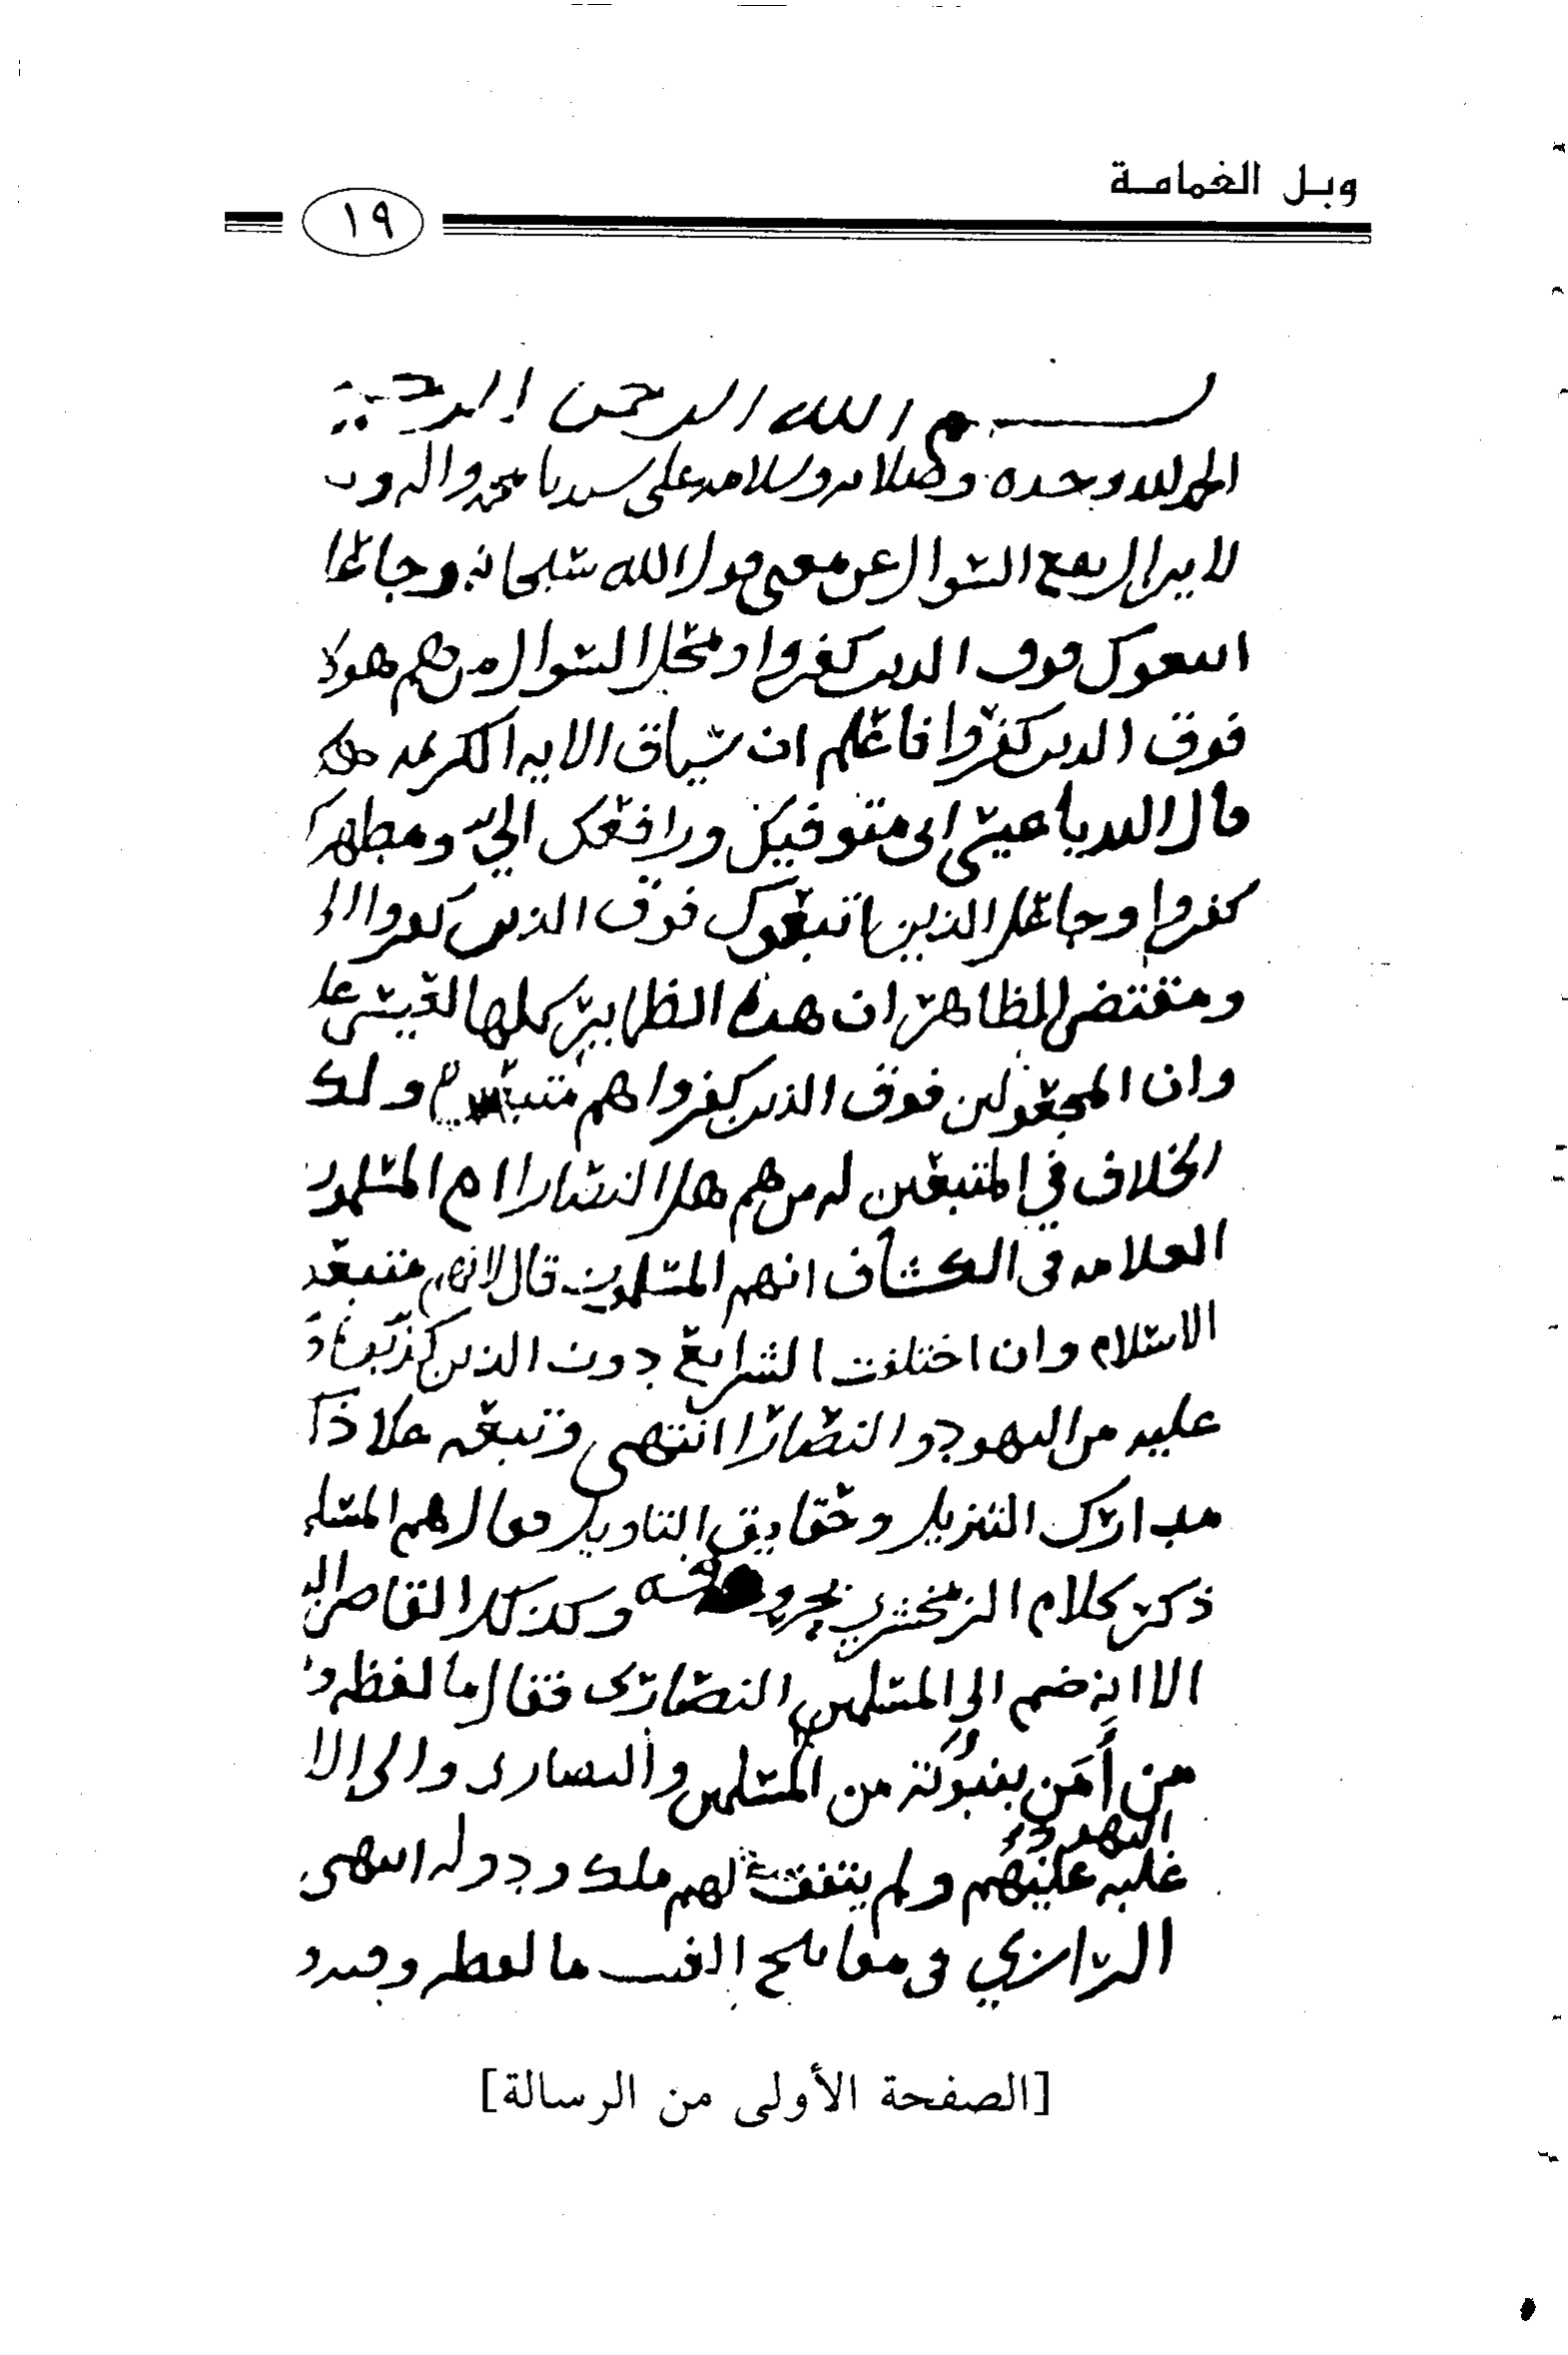 وبل الغمامة
١٩
بسم الله الرحمن الرحيم
الحمد لله وحده وصلاته وسلامه على سيدنا محمد واله وب
لا يزال يقع السوال عن معنى قول الله سبحانه وجاعل ا
اتبعوك فوق الذين كفروا ومحل السوال من هم هولا
فوق الذين كفروا فاعلم ان سياق الايه الكريمه هكذ
قال الله يا عيسى اني متوفيك ورافعك الي ومطهرك
كفروا وجاعل الذين اتبعوك فوق الذين كفروا الى
ومقتضى الظاهر ان هذه الظماير كلها لعيسى عل
وان المجعولين فوق الذين كفروا هم ولك
الخلاف في المتبعين له من هم هل النصارا ام المسلمون
العلامه في الكشاف انهم المسلمون قال لانهم متبعو
الاسلام وان اختلفت الشرايع دون الذين كذبوا و
عليه من اليهود والنصارا انتهى وتبعه علا ذا
مدارك التنزيل وحقايق التاويل فقال هم المسلم
ذكر كلام الزمخشري بحروفه وكذلك القاضي الب
الا انه ضم الى المسلمين النصارى فقال ما لفظه و
من أمن بنبوته من المسلمين والنصارى والى الا
اليهود
غلبه عليهم ولم يتفق لهم ملك ودوله انتهى
الرازي في مفاتيح الغيب ما لفظه وفيه و
[الصفحة الأولى من الرسالة]